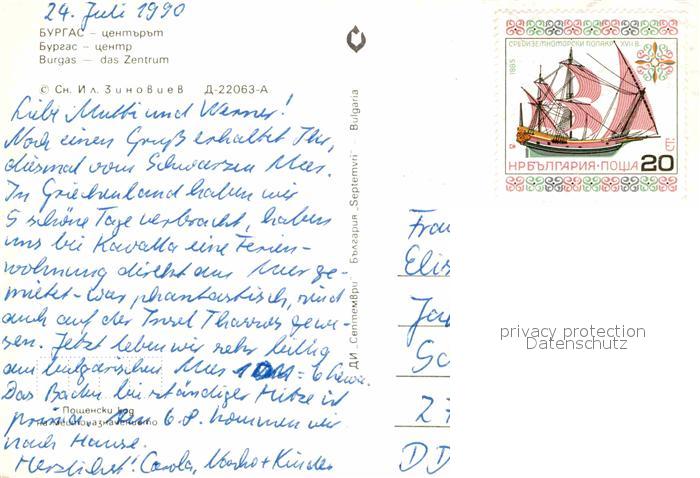 24. Juli 1990
БУРГАС – центърът
Бургас – центр
Burgas – das Zentrum
© Сн. Ил. Зиновиев Д-22063-А
Liebe Mutti und Werner!
Noch einen Gruß erhaltet Ihr,
diesmal vom Schwarzen Meer.
In Griechenland haben wir
5 schöne Tage verbracht, haben
uns bei Kavalla eine Ferien-
wohnung direkt am Meer ge-
mietet – war phantastisch, sind
auch auf der Insel Thassos gewe-
sen. Jetzt leben wir sehr billig
am bulgarischen Meer 1 DM = 6 Lewa.
Das Baden bei ständiger Hitze ist
prima. Am 6.8. kommen wir
nach Hause.
Herzlichst! Carola, + Kinder
Пощенски код
на местоназначението
ДИ „Септември" България „Septemvri" Bulgaria
СРЕДИЗЕМНОМОРСКИ ПОЛАКА XVII В.
1985
НР БЪЛГАРИЯ · ПОЩА 20 СТ.
Frau
Elis
Z
DD
privacy protection
Datenschutz